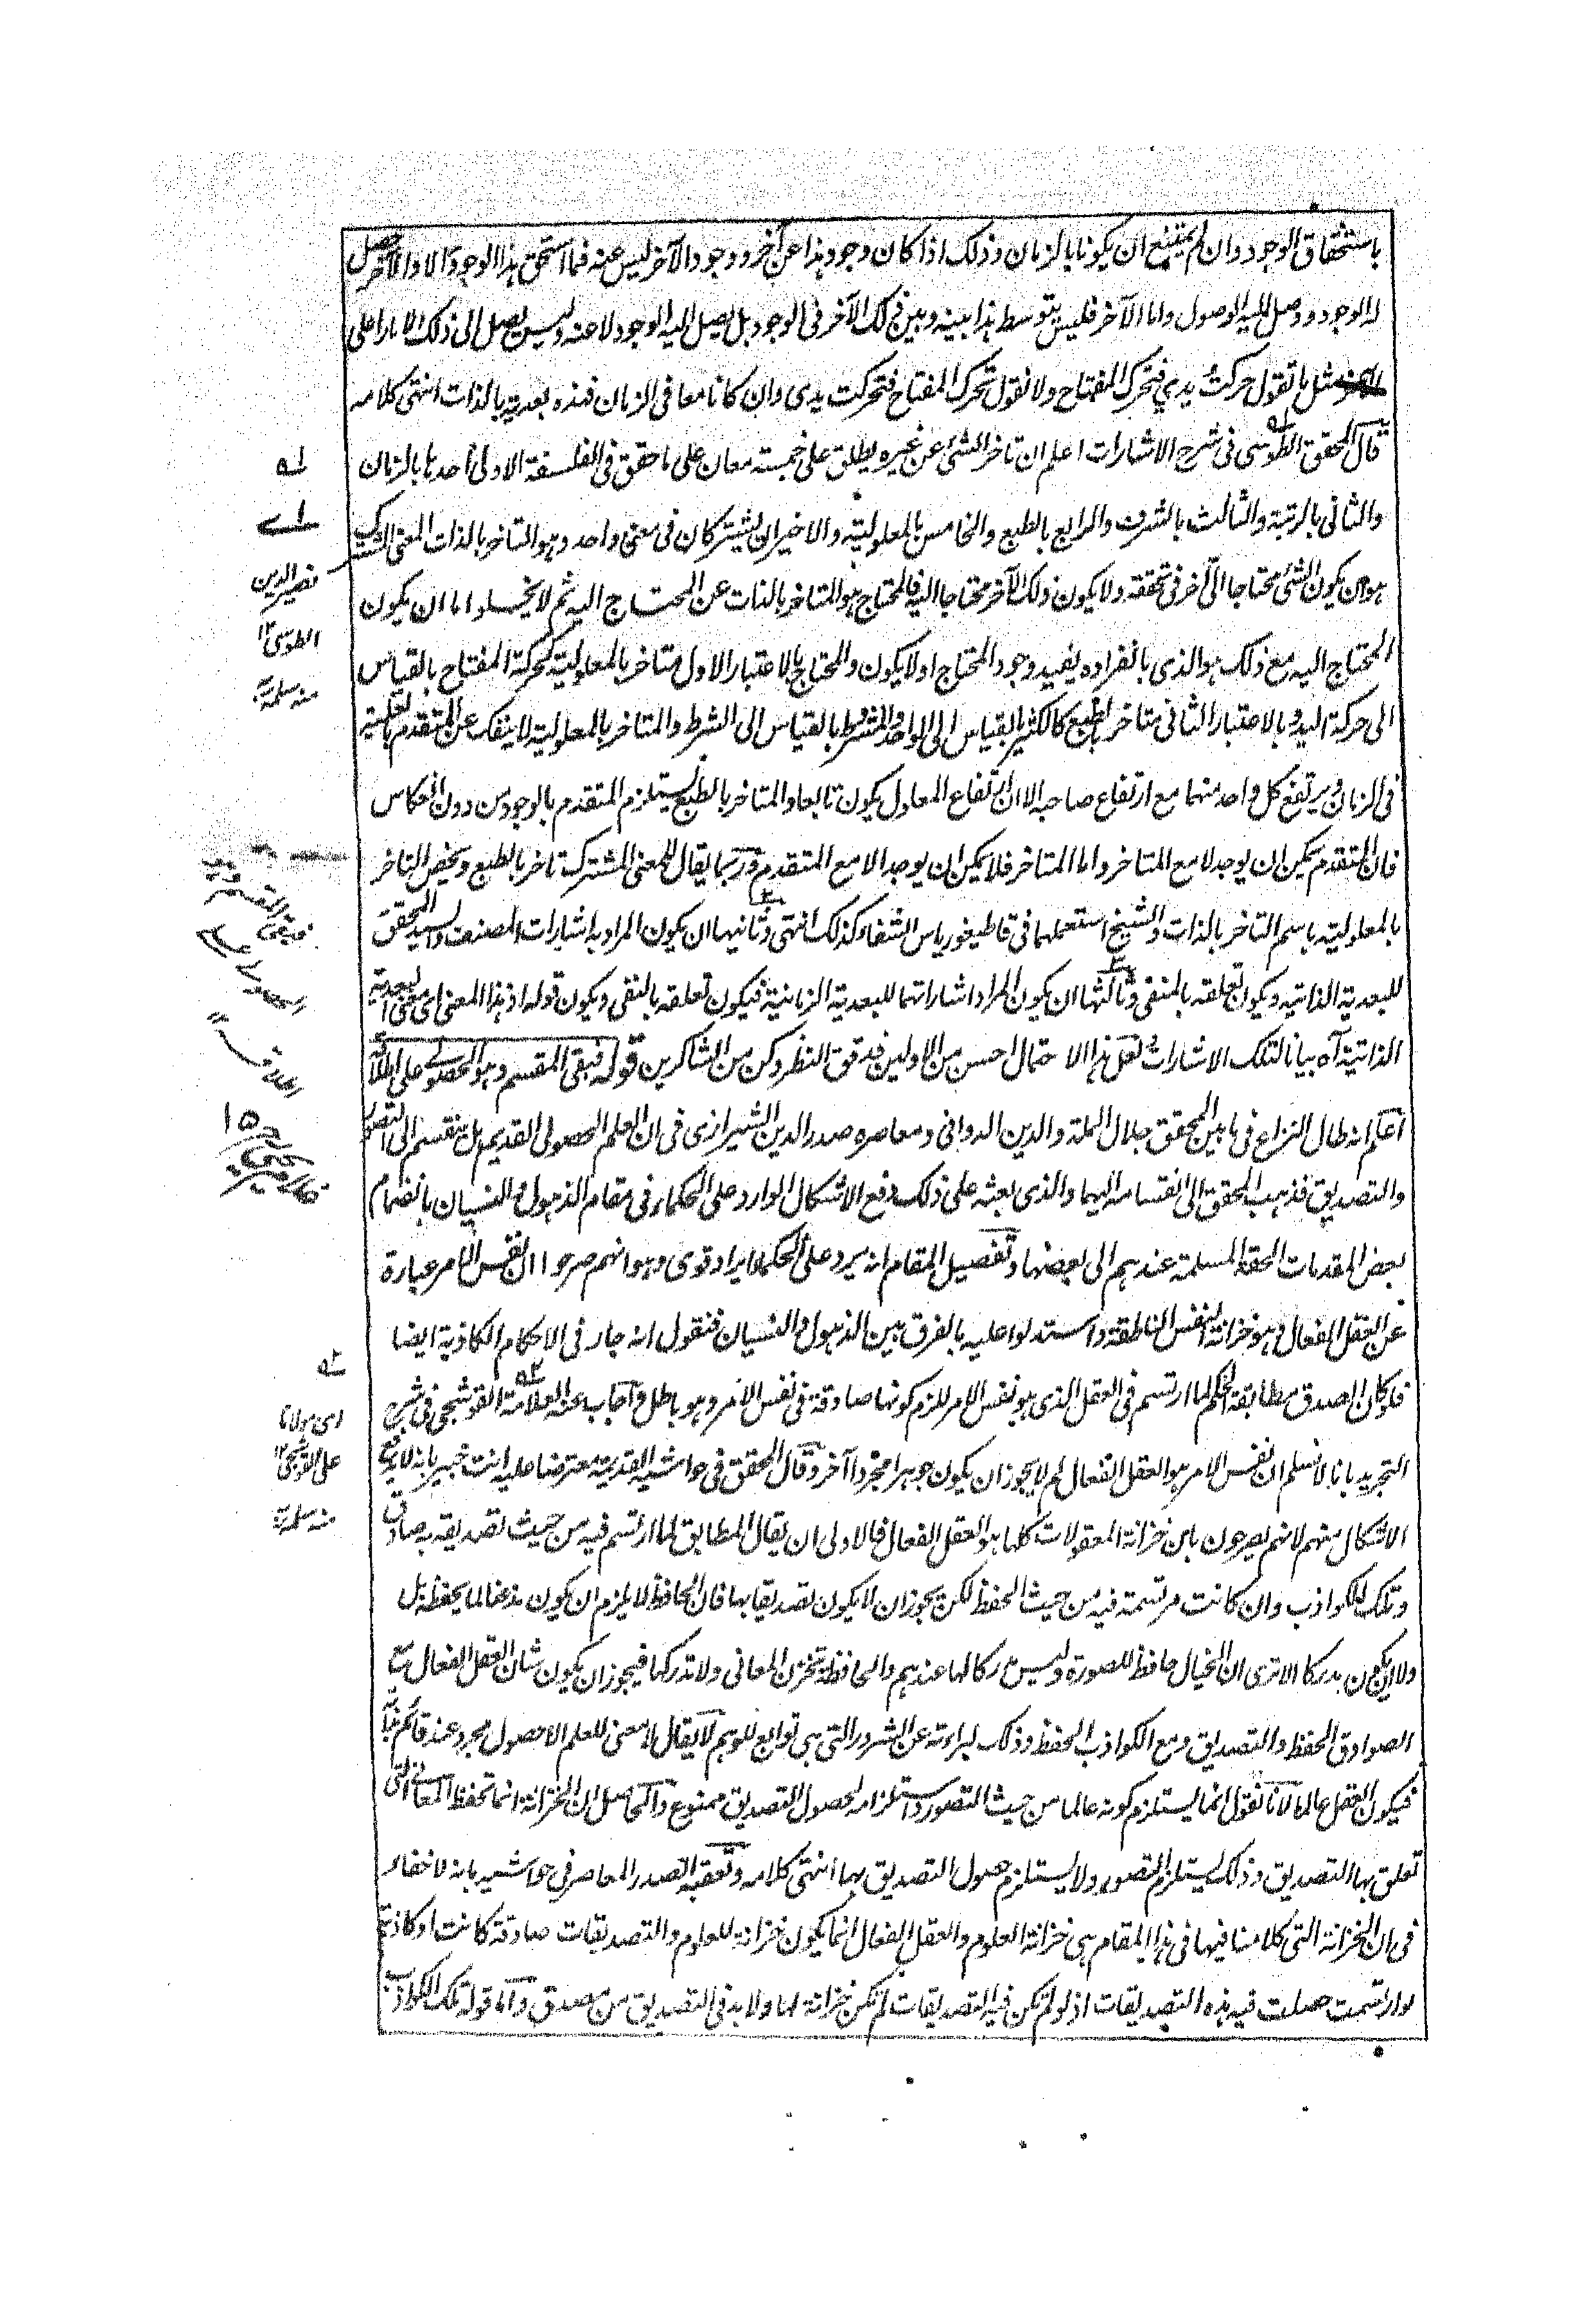 باستحقاق الوجود وان لم يمتنع ان يكونا بالزمان وذلك اذا كان وجود هذا عن آخر ووجود الآخر ليس عنه فما استحق هذا الوجود الا والآخر حصل
له الوجود ووصل اليه الوصول واما الآخر فليس يتوسط هذا بينه وبين ذلك الآخر فى الوجود بل يصل اليه الوجود لا عنه وليس يصل الى ذلك الا مارا على
مثل ما تقول حركت يدي فتحرك المفتاح ولا نقول تحرك المفتاح فتحركت يدى وان كانا معا فى الزمان فهذه بعدية بالذات انتهى كلامه
قال المحقق الطوسى فى شرح الاشارات اعلم ان تاخر الشئ عن غيره يطلق على خمسة معان على ما حقق فى الفلسفة الاولى احدها بالزمان
والثانى بالرتبة والثالث بالشرف والرابع بالطبع والخامس بالمعلولية والاخيران يشتركان فى معنى واحد وهو التاخر بالذات المعنى المشترك
هو ان يكون الشئ محتاجا الى آخر فى تحققه ولا يكون ذلك الآخر محتاجا اليه فالمحتاج هو المتاخر بالذات عن المحتاج اليه ثم لا يخلو اما ان يكون
المحتاج اليه مع ذلك هو الذى بانفراده يفيد وجود المحتاج او لا يكون والمحتاج بالاعتبار الاول متاخر بالمعلولية كحركة المفتاح بالقياس
الى حركة اليد وبالاعتبار الثانى متاخر بالطبع كالكثير بالقياس الى الواحد والمشروط بالقياس الى الشرط والمتاخر بالمعلولية لا ينفك عن المتقدم بالعلية
فى الزمان ويرتفع كل واحد منهما مع ارتفاع صاحبه الا ان ارتفاع المعلول يكون تابعا والمتاخر بالطبع يستلزم المتقدم بالوجود من دون انعكاس
فان المتقدم يمكن ان يوجد لا مع المتاخر واما المتاخر فلا يمكن ان يوجد الا مع المتقدم وربما يقال للمعنى المشترك تاخر بالطبع ويخص التاخر
بالمعلولية باسم التاخر بالذات والشيخ استعملها فى قاطيغورياس الشفا وكذلك انتهى وثانيها ان يكون المراد باشارات المصنف والسيد المحقق
للبعدية الذاتية ويكون تعلقه بالمنفى وثالثها ان يكون المراد اشاراتهما للبعدية الزمانية فيكون تعلقه بالنفى ويكون قوله اذ هذا المعنى اى معنى البعدية
الذاتية آه بيانا لتلك الاشارات ولعل هذا الاحتمال احسن من الاولين فدقق النظر وكن من الشاكرين قوله فبقى المقسم وهو الحصولى على اطلاقه
اعلم انه طال النزاع فى ما بين المحقق جلال الملة والدين الدوانى ومعاصره صدر الدين الشيرازى فى ان العلم الحصولى القديم هل ينقسم الى التصور
والتصديق فذهب المحقق الى انقسامه اليهما والذى بعثه على ذلك دفع الاشكال الوارد على الحكماء فى مقام الذهول والنسيان بانضمام
بعض المقدمات الحقة المسلمة عندهم الى بعضها وتفصيل المقام انه يرد على الحكماء ايراد قوى وهو انهم صرحوا ان نفس الامر عبارة
عن العقل الفعال وهو خزانة النفس الناطقة واستدلوا عليه بالفرق بين الذهول والنسيان فنقول انه جار فى الاحكام الكاذبة ايضا
فلو كان الصدق مطابقة الحكم لما ارتسم فى العقل الذى هو نفس الامر للزم كونها صادقة فى نفس الامر وهو باطل واجاب عنه العلامة القوشجى فى شرح
التجريد بانا لا نسلم ان نفس الامر هو العقل الفعال لم لا يجوز ان يكون جوهرا مجردا آخر وقال المحقق فى حواشيه القديمة معترضا عليه انت خبير بانه لا يدفع
الاشكال منهم لانهم يصرحون بان خزانة المعقولات كلها هو العقل الفعال فالاولى ان يقال المطابق لما ارتسم فيه من حيث تصديقه به صادق
وتلك الكواذب وان كانت مرتسمة فيه من حيث الحفظ لكن يجوز ان لا يكون تصديقا بها فان الحافظ لا يلزم ان يكون مذعنا لما يحفظه بل
ولا ان يكون مدركا الا ترى ان الخيال حافظ للصورة وليس مدركا لها عندهم والحافظة تخزن المعانى ولا تدركها فيجوز ان يكون شان العقل الفعال مع
الصوادق الحفظ والتصديق ومع الكواذب الحفظ وذلك لبراءته عن الشرور التى هى توابع للوهم لا يقال لا معنى للعلم الا حصول مجرد عند قائم بذاته
فيكون العقل عالما لانا نقول انما يستلزم كونه عالما من حيث التصور واستلزامه لحصول التصديق ممنوع والحاصل ان الخزانة انما تحفظ المعانى التى
تعلق بها التصديق وذلك يستلزم التصور ولا يستلزم حصول التصديق بها انتهى كلامه وتعقبه الصدر المعاصر فى حواشيه بانه لا خفاء
فى ان الخزانة التى كلامنا فيها فى هذا المقام هى خزانة العلوم والعقل الفعال انما يكون خزانة للعلوم والتصديقات صادقة كانت او كاذبة
لو ارتسمت حصلت فيه هذه التصديقات اذ لو لم تكن فيه التصديقات لم تكن خزانة لها ولا بد فى التصديق من مصدق واما قوله تلك الكواذب
له
نصير الدين
الطوسى ١٢
منه سلمه
له
اى مولانا
على القوشجى ١٢
منه سلمه